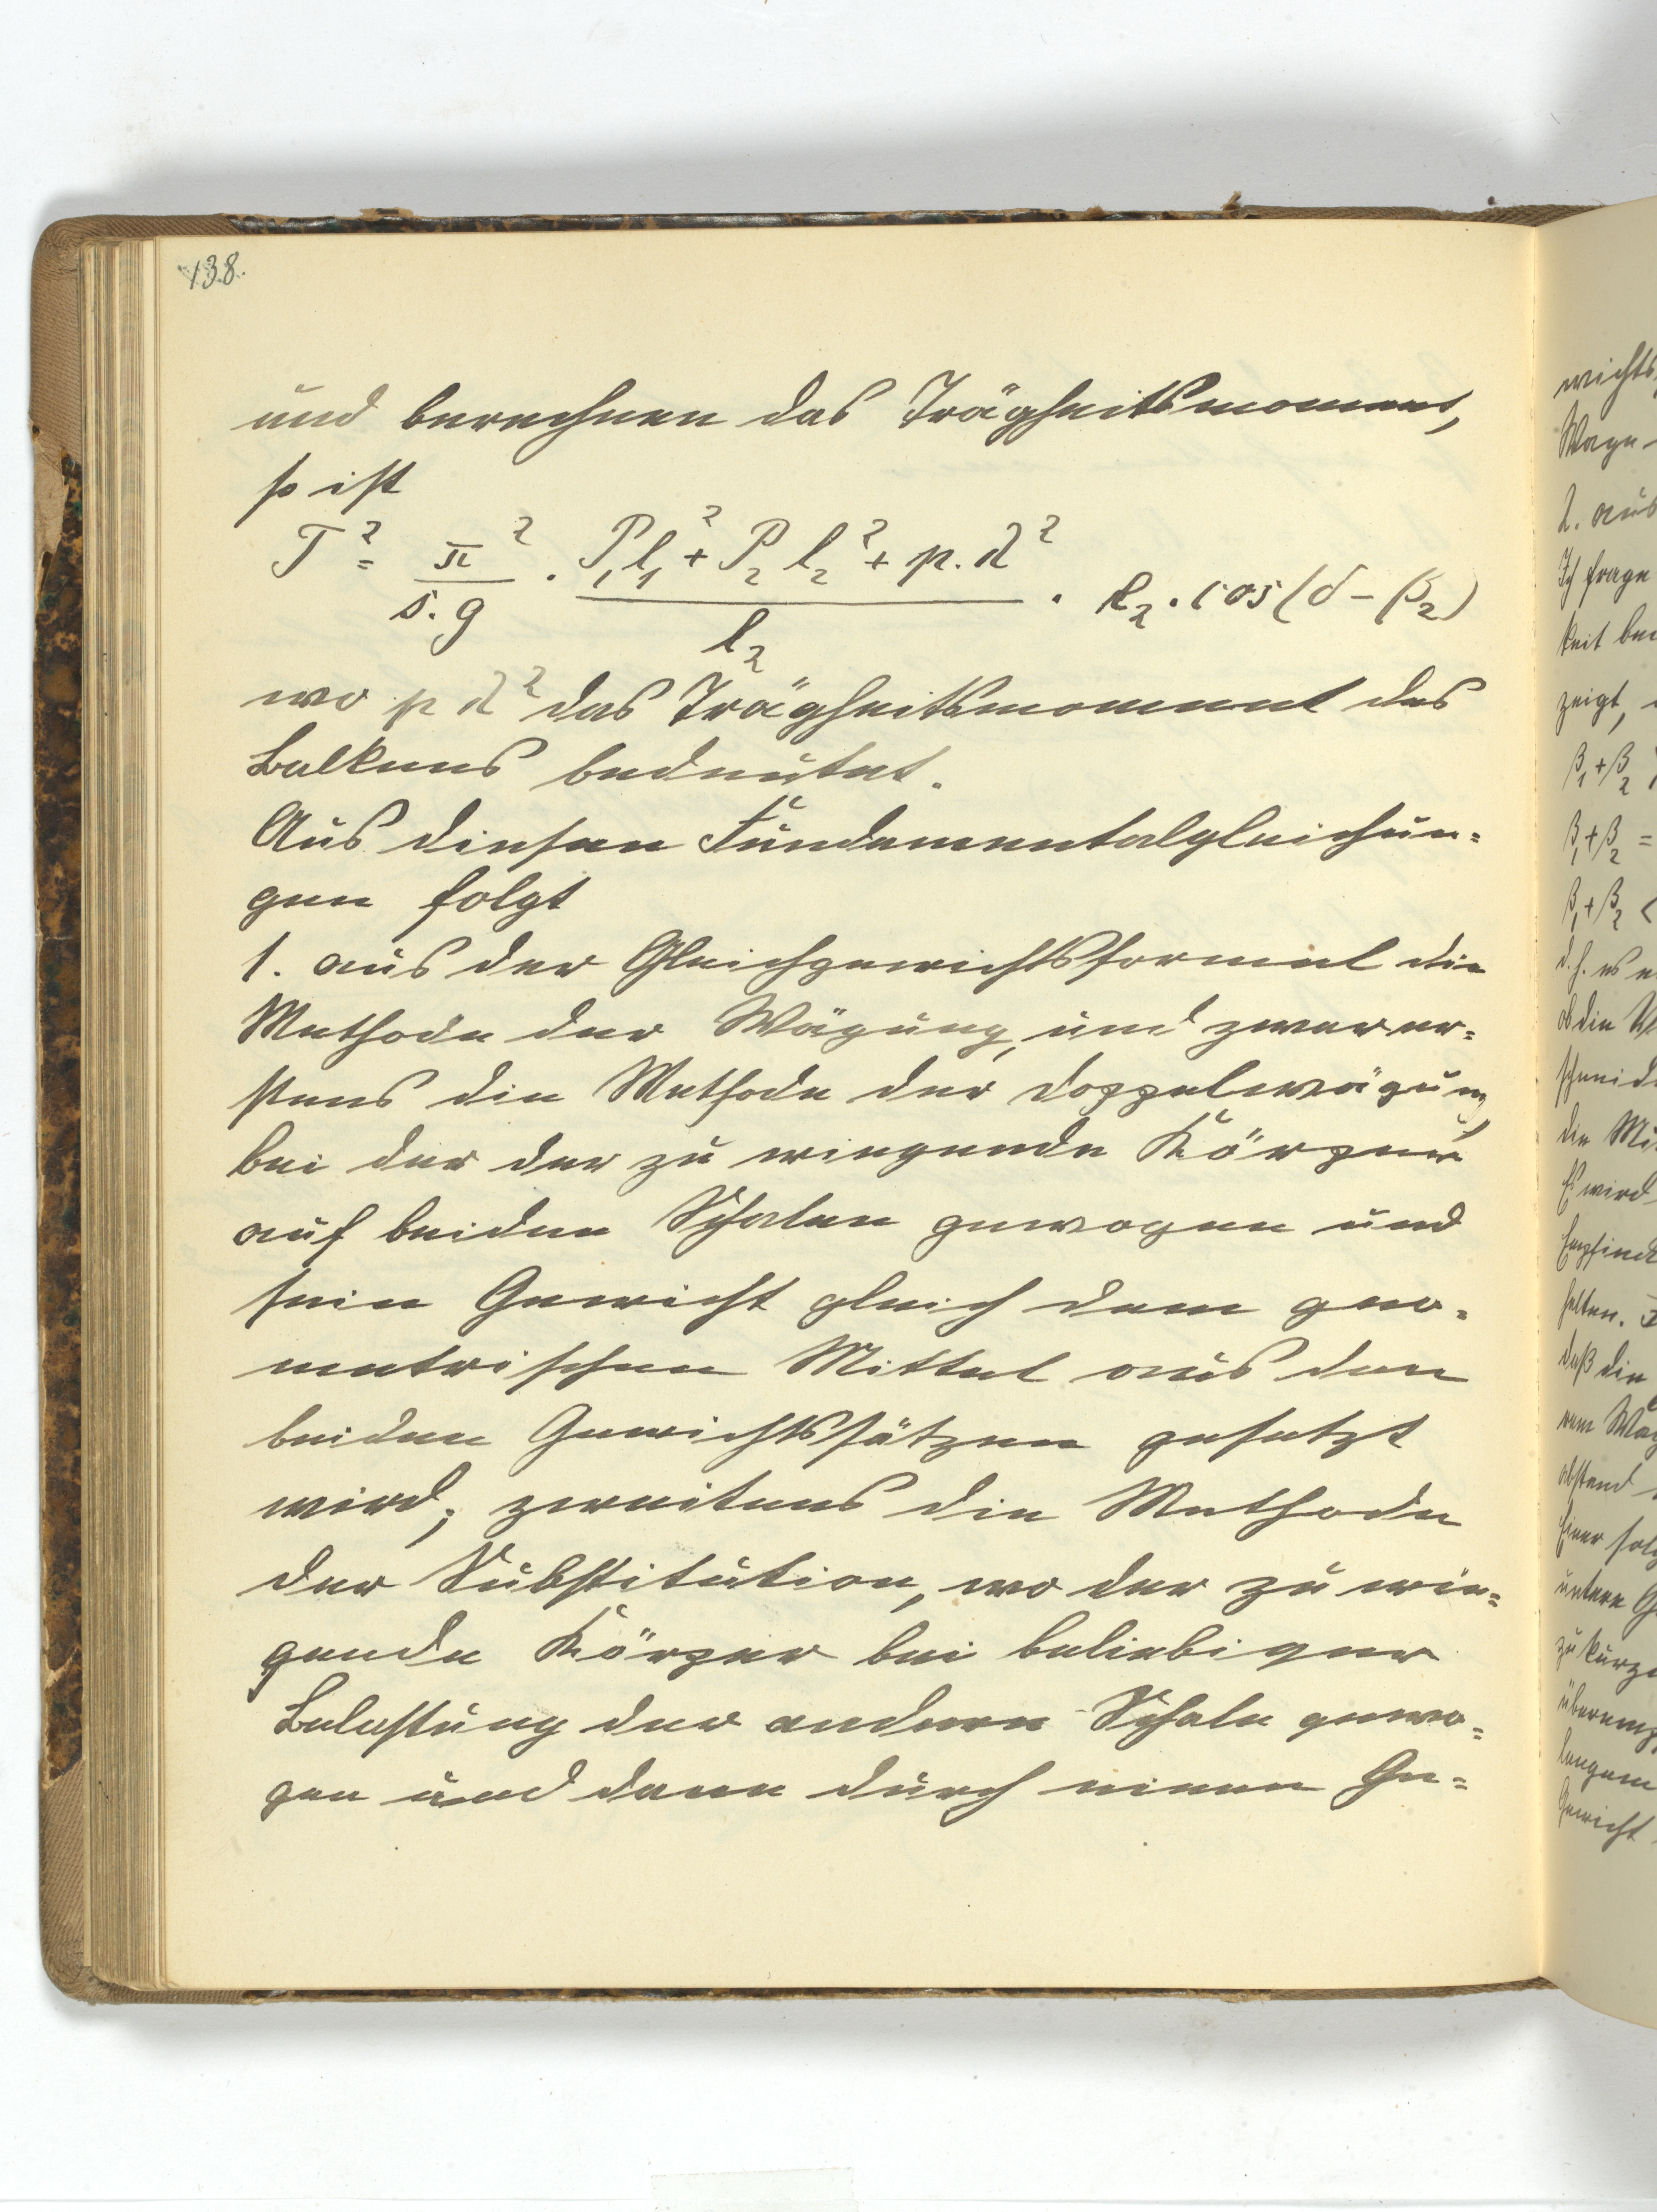 138.
und berechnen das Trägheitsmoment,
so ist
T² = π² / s.g . (P₁l₁² + P₂l₂² + p.d²) / l₂ . l₂ . cos(δ - β₂)
wo p d² das Trägheitsmoment des
Balkens bedeutet.
Aus diesen Fundamentalgleichun=
gen folgt
1. aus der Gleichgewichtsformel die
Methode der Wägung, und zwar er=
stens die Methode der Doppelwägung,
bei der der zu wiegende Körper
auf beiden Schalen gewogen und
sein Gewicht gleich dem geo=
metrischen Mittel aus den
beiden Gewichtssätzen gesetzt
wird; zweitens die Methode
der Substitution, wo der zu wie=
gende Körper bei beliebiger
Belastung der andern Schale gewo=
gen und dann durch einen Ge=
wichts
Wage
2. aus
Ich frage
keit bei
zeigt,
β₁+β₂
β₁+β₂ =
β₁+β₂ <
d.h. es
ob die
schneid
die
Es wird
Empfind
halten.
daß die
abstand
Einer
untere
zu kurze
langem
Gewicht